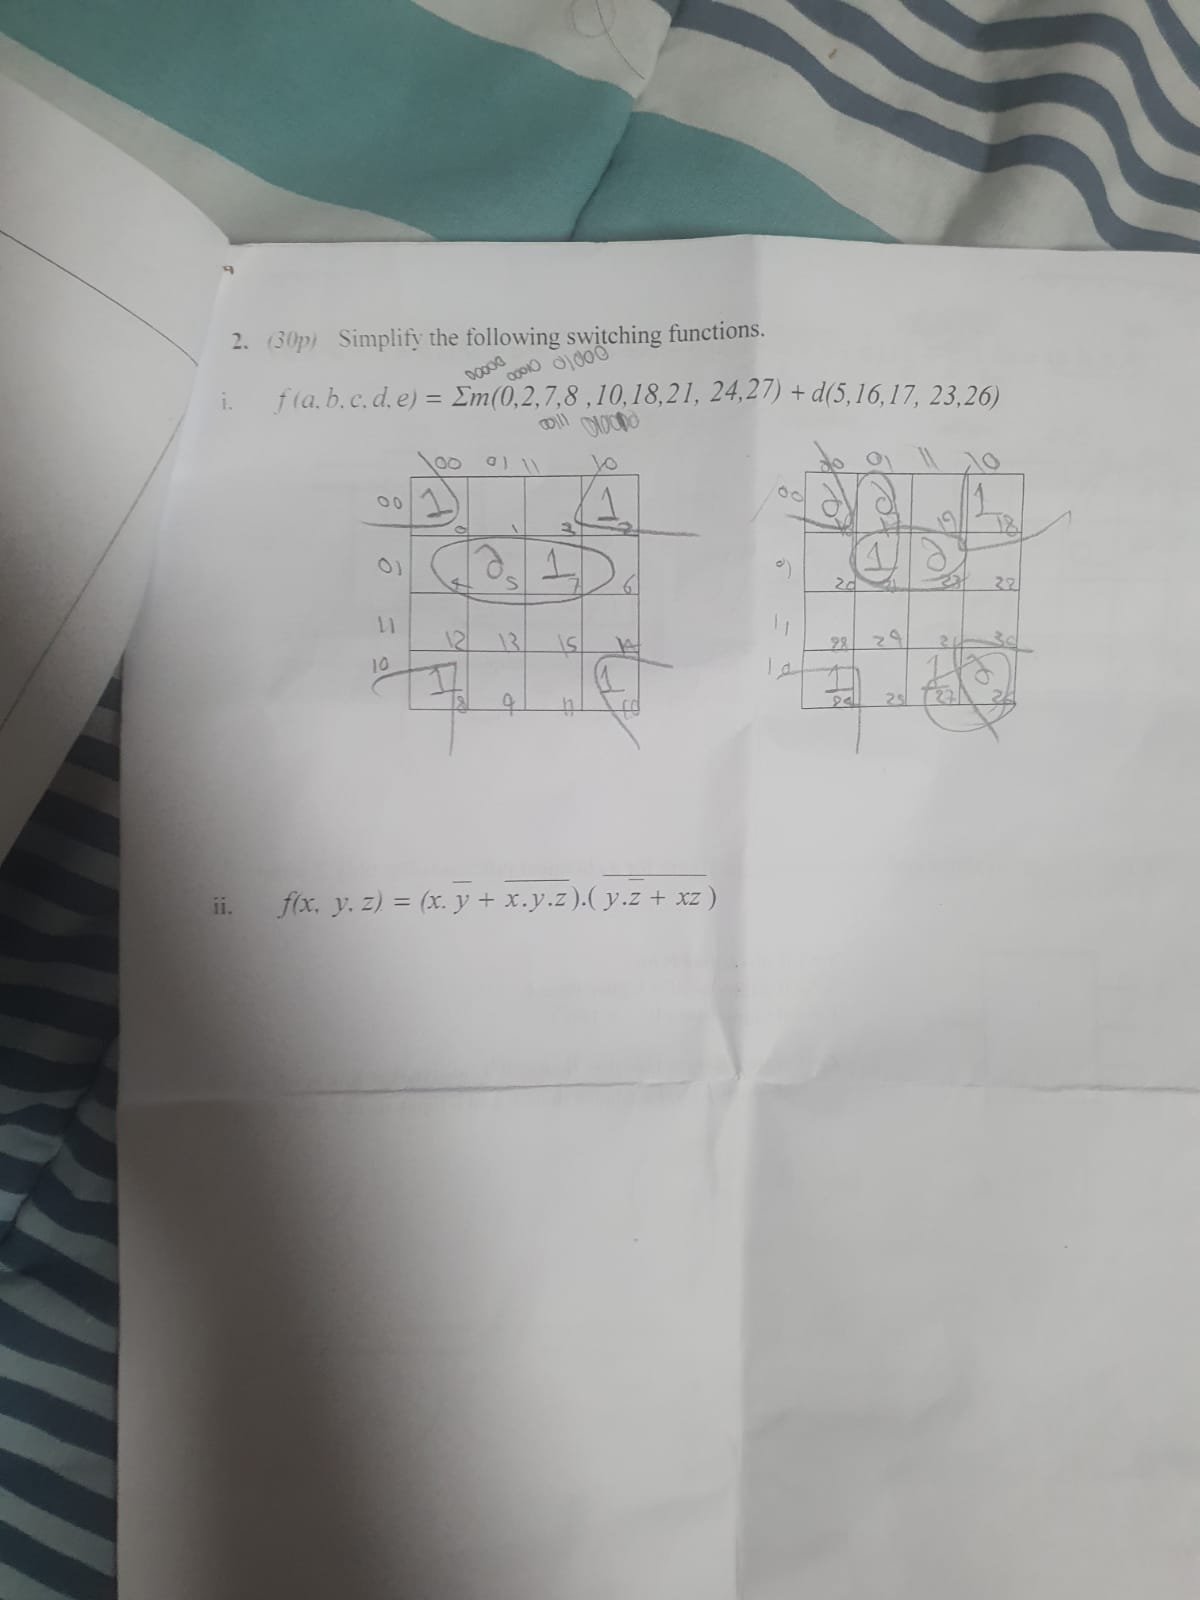 2. (30p) Simplify the following switching functions.
00000 00010 01000
i. f (a, b, c, d, e) = Σm(0,2,7,8 ,10,18,21, 24,27) + d(5,16,17, 23,26)
00111
00 01 11 10
00 1 0 1 3 1 2
01 4 ∂ 5 1 7 6
11 12 13 15 14
10 1 8 9 11 1 10
00 01 11 10
00 ∂ 16 ∂ 17 19 1 18
01 20 1 21 ∂ 23 22
11 28 29 31 30
10 1 24 25 1 27 ∂ 26
ii. f(x, y, z) = (x. y̅ + x̅.̅y̅.̅z̅ ).( y̅.̅z̿ ̅+̅ ̅x̅z̅ )